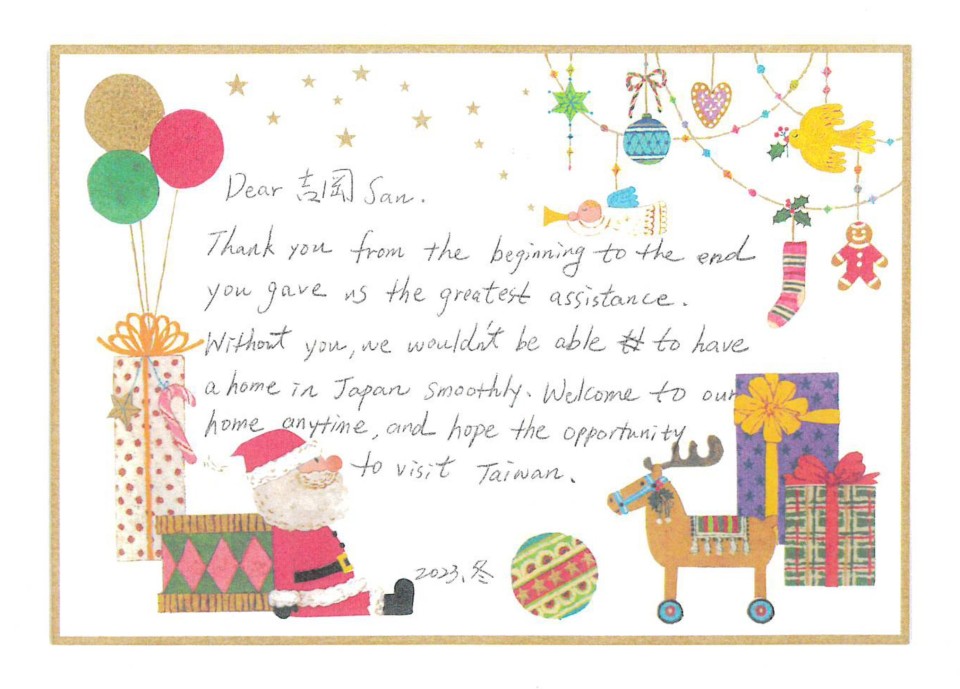 Dear 吉岡 San.
Thank you from the beginning to the end
you gave us the greatest assistance.
Without you, we wouldn't be able to have
a home in Japan smoothly. Welcome to our
home anytime, and hope the opportunity
to visit Taiwan.
2023、冬